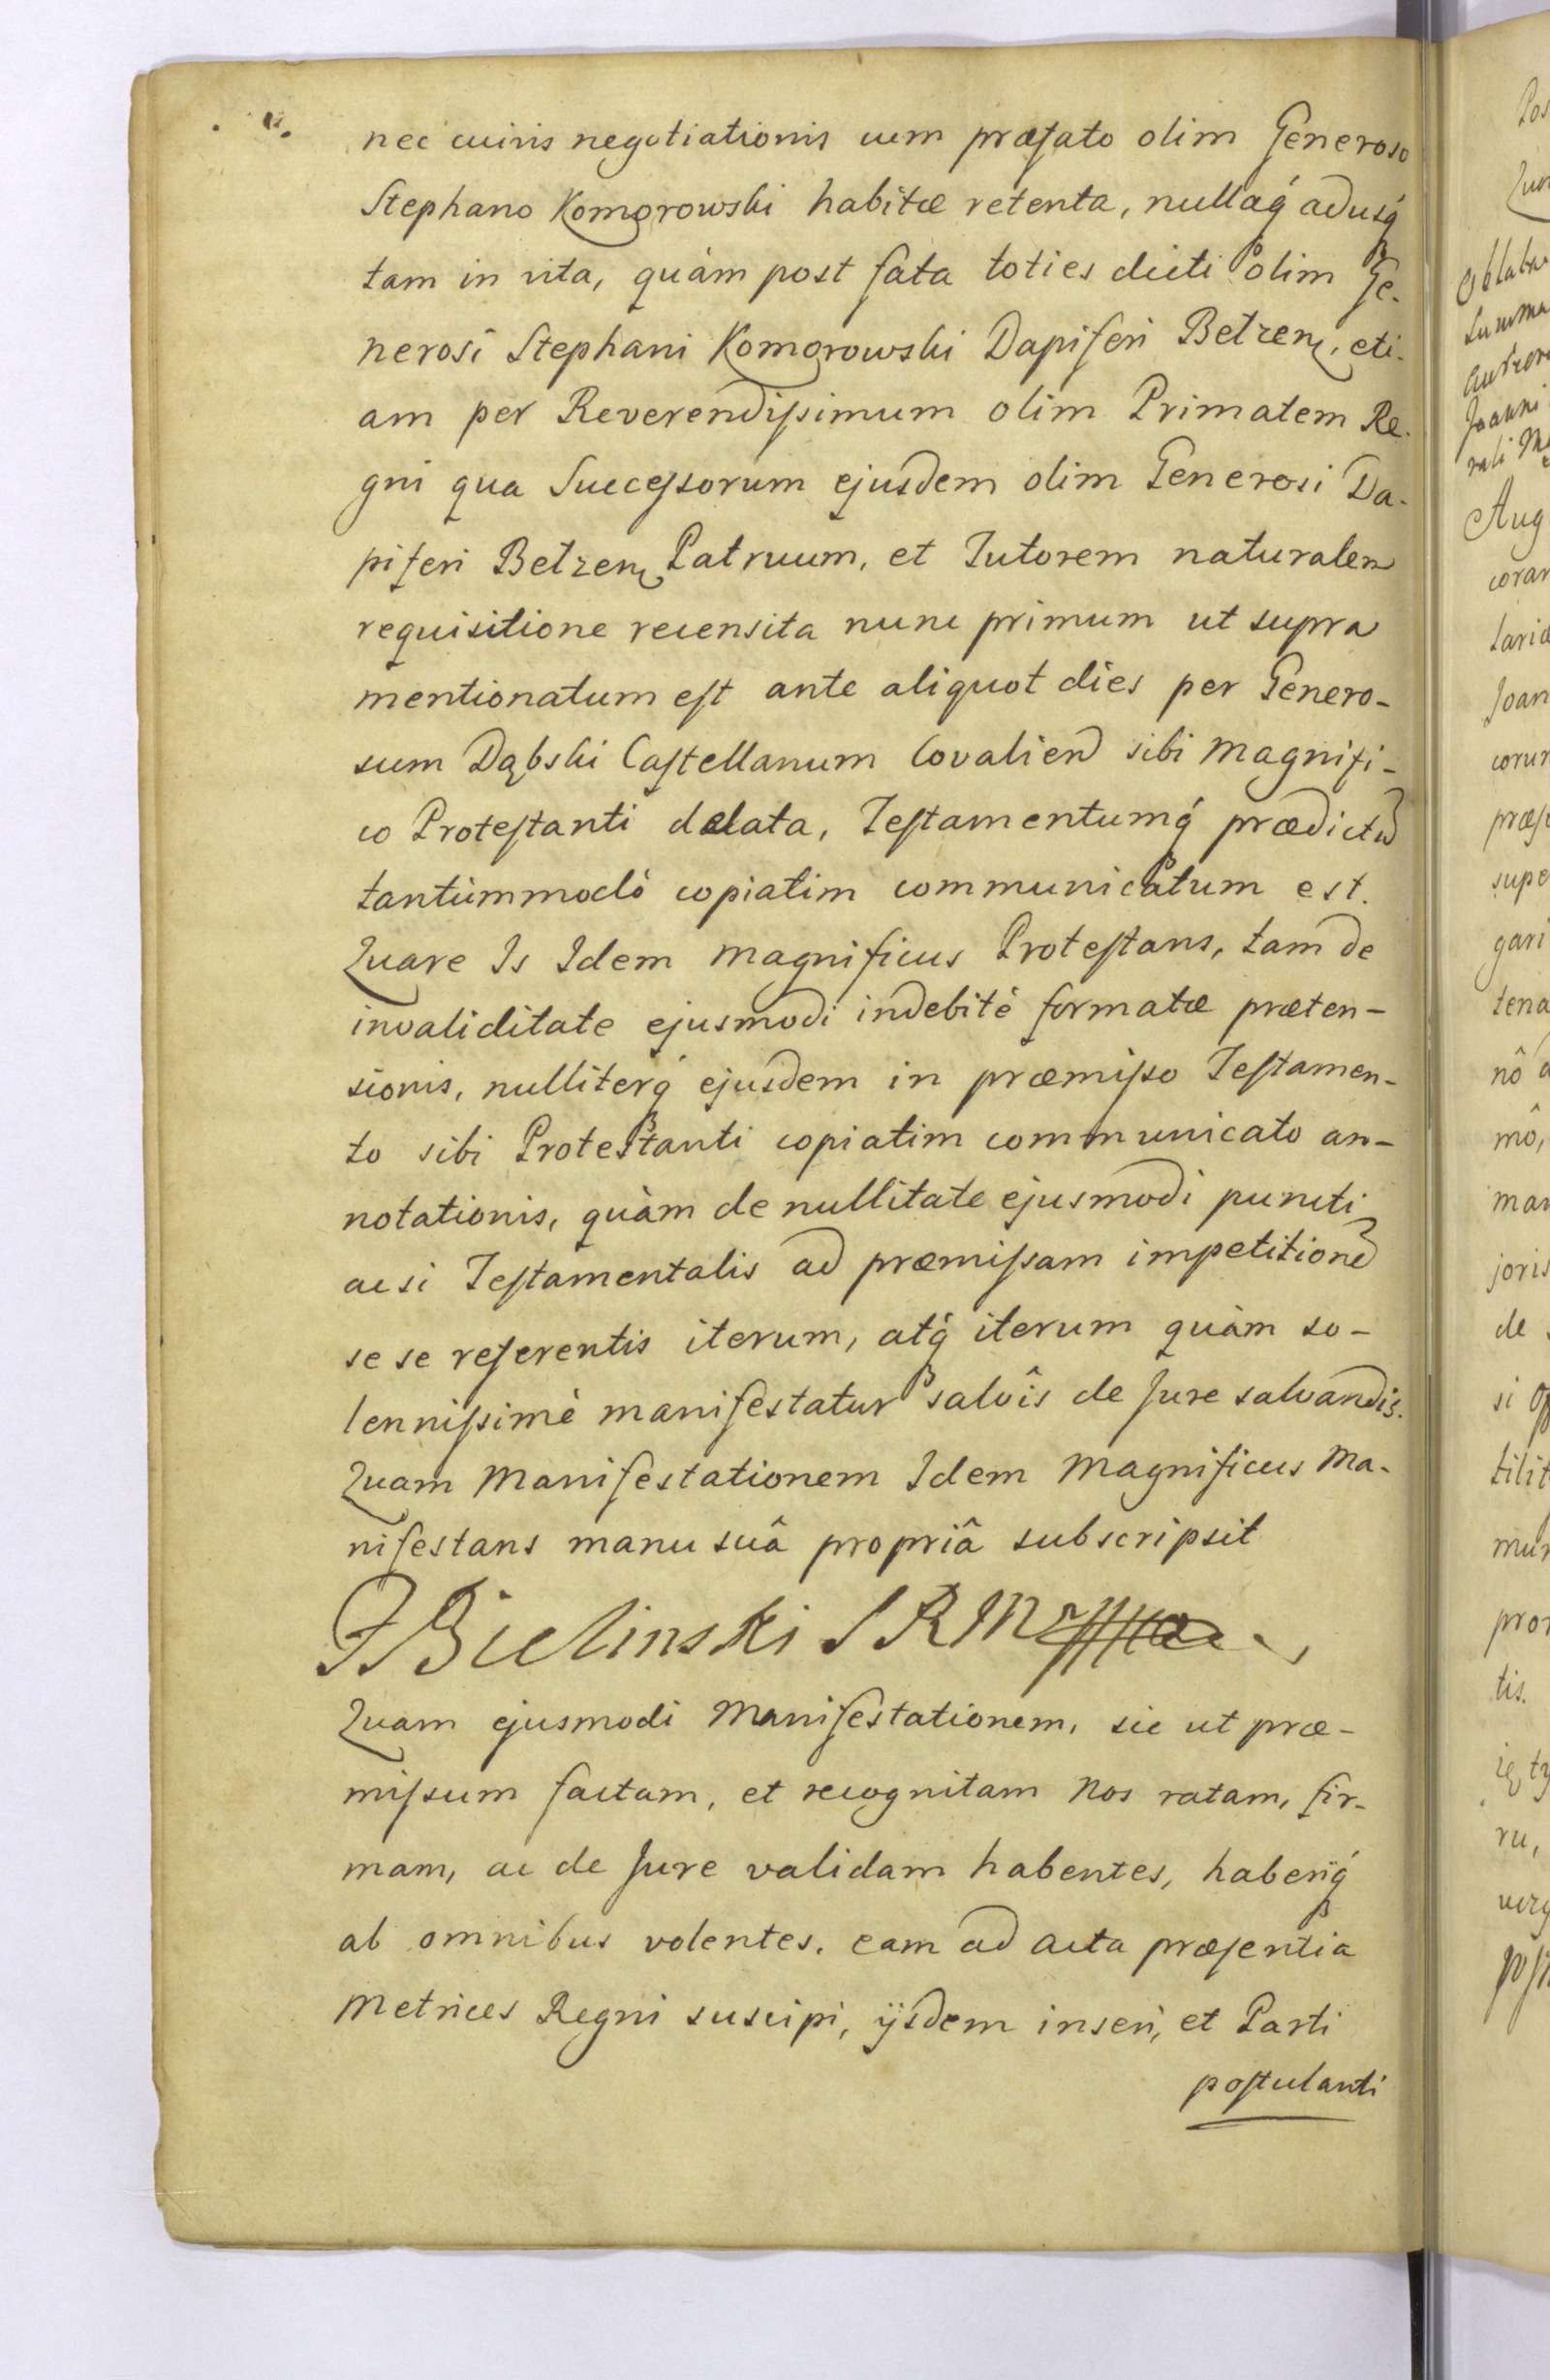 nec cuivis negotiationis cum præfato olim Generoso
Stephano Komorowski habitæ retenta, nullaq́ adusq́
tam in vita, quàm post fata toties dicti olim Ge-
nerosi Stephani Komorowski Dapiferi Betzen, eti-
am per Reverendissimum olim Primatem Re-
gni qua Successorum ejusdem olim Generosi Da-
piferi Betzen Patruum, et Tutorem naturalem
requisitione recensita nunc primum ut supra
mentionatum est ante aliquot dies per Genero-
sum Dąbski Castellanum Covalien sibi Magnifi-
co Protestanti delata, Testamentumq́ prædictū
tantùmmodò copiatim communicatum est.
Quare Is Idem Magnificus Protestans, tam de
invaliditate ejusmodi indebitè formatæ præten-
sionis, nulliterq́ ejusdem in præmisso Testamen-
to sibi Protestanti copiatim communicato an-
notationis, quàm de nullitate ejusmodi puncti
acsi Testamentalis ad præmissam impetitionē
se se referentis iterum, atq́ iterum quàm so-
lennissimè manifestatur salvîs de Jure salvandis.
Quam Manifestationem Idem Magnificus Ma-
nifestans manu suâ propriâ subscripsit
F Bielinski S R M
Quam ejusmodi Manifestationem, sic ut præ-
missum factam, et recognitam Nos ratam, fir-
mam, ac de Jure validam habentes, haberiq́
ab omnibus volentes, eam ad Acta præsentia
Metrices Regni suscipi, ijsdem inseri, et Parti
postulanti